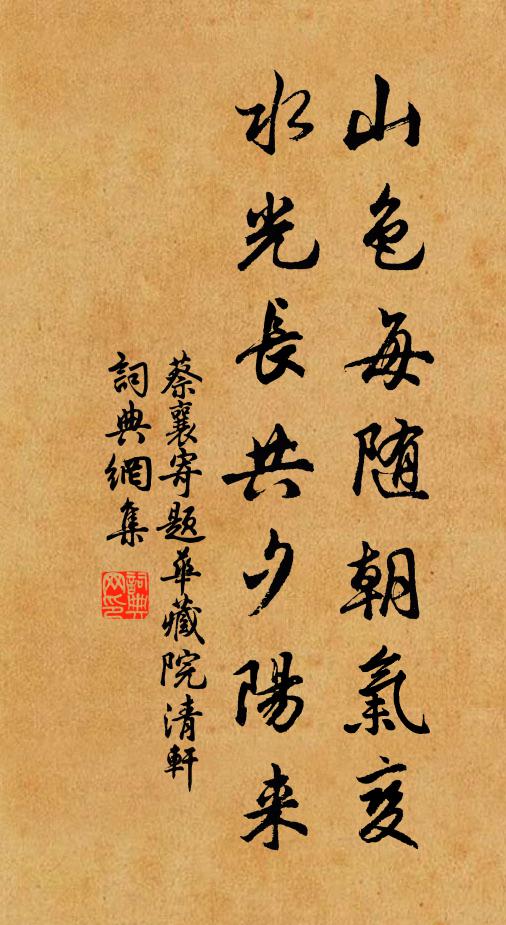 山色每随朝氣变
水光長共夕陽来
蔡襄寄题華藏院清軒
詞典網集
詞典网印